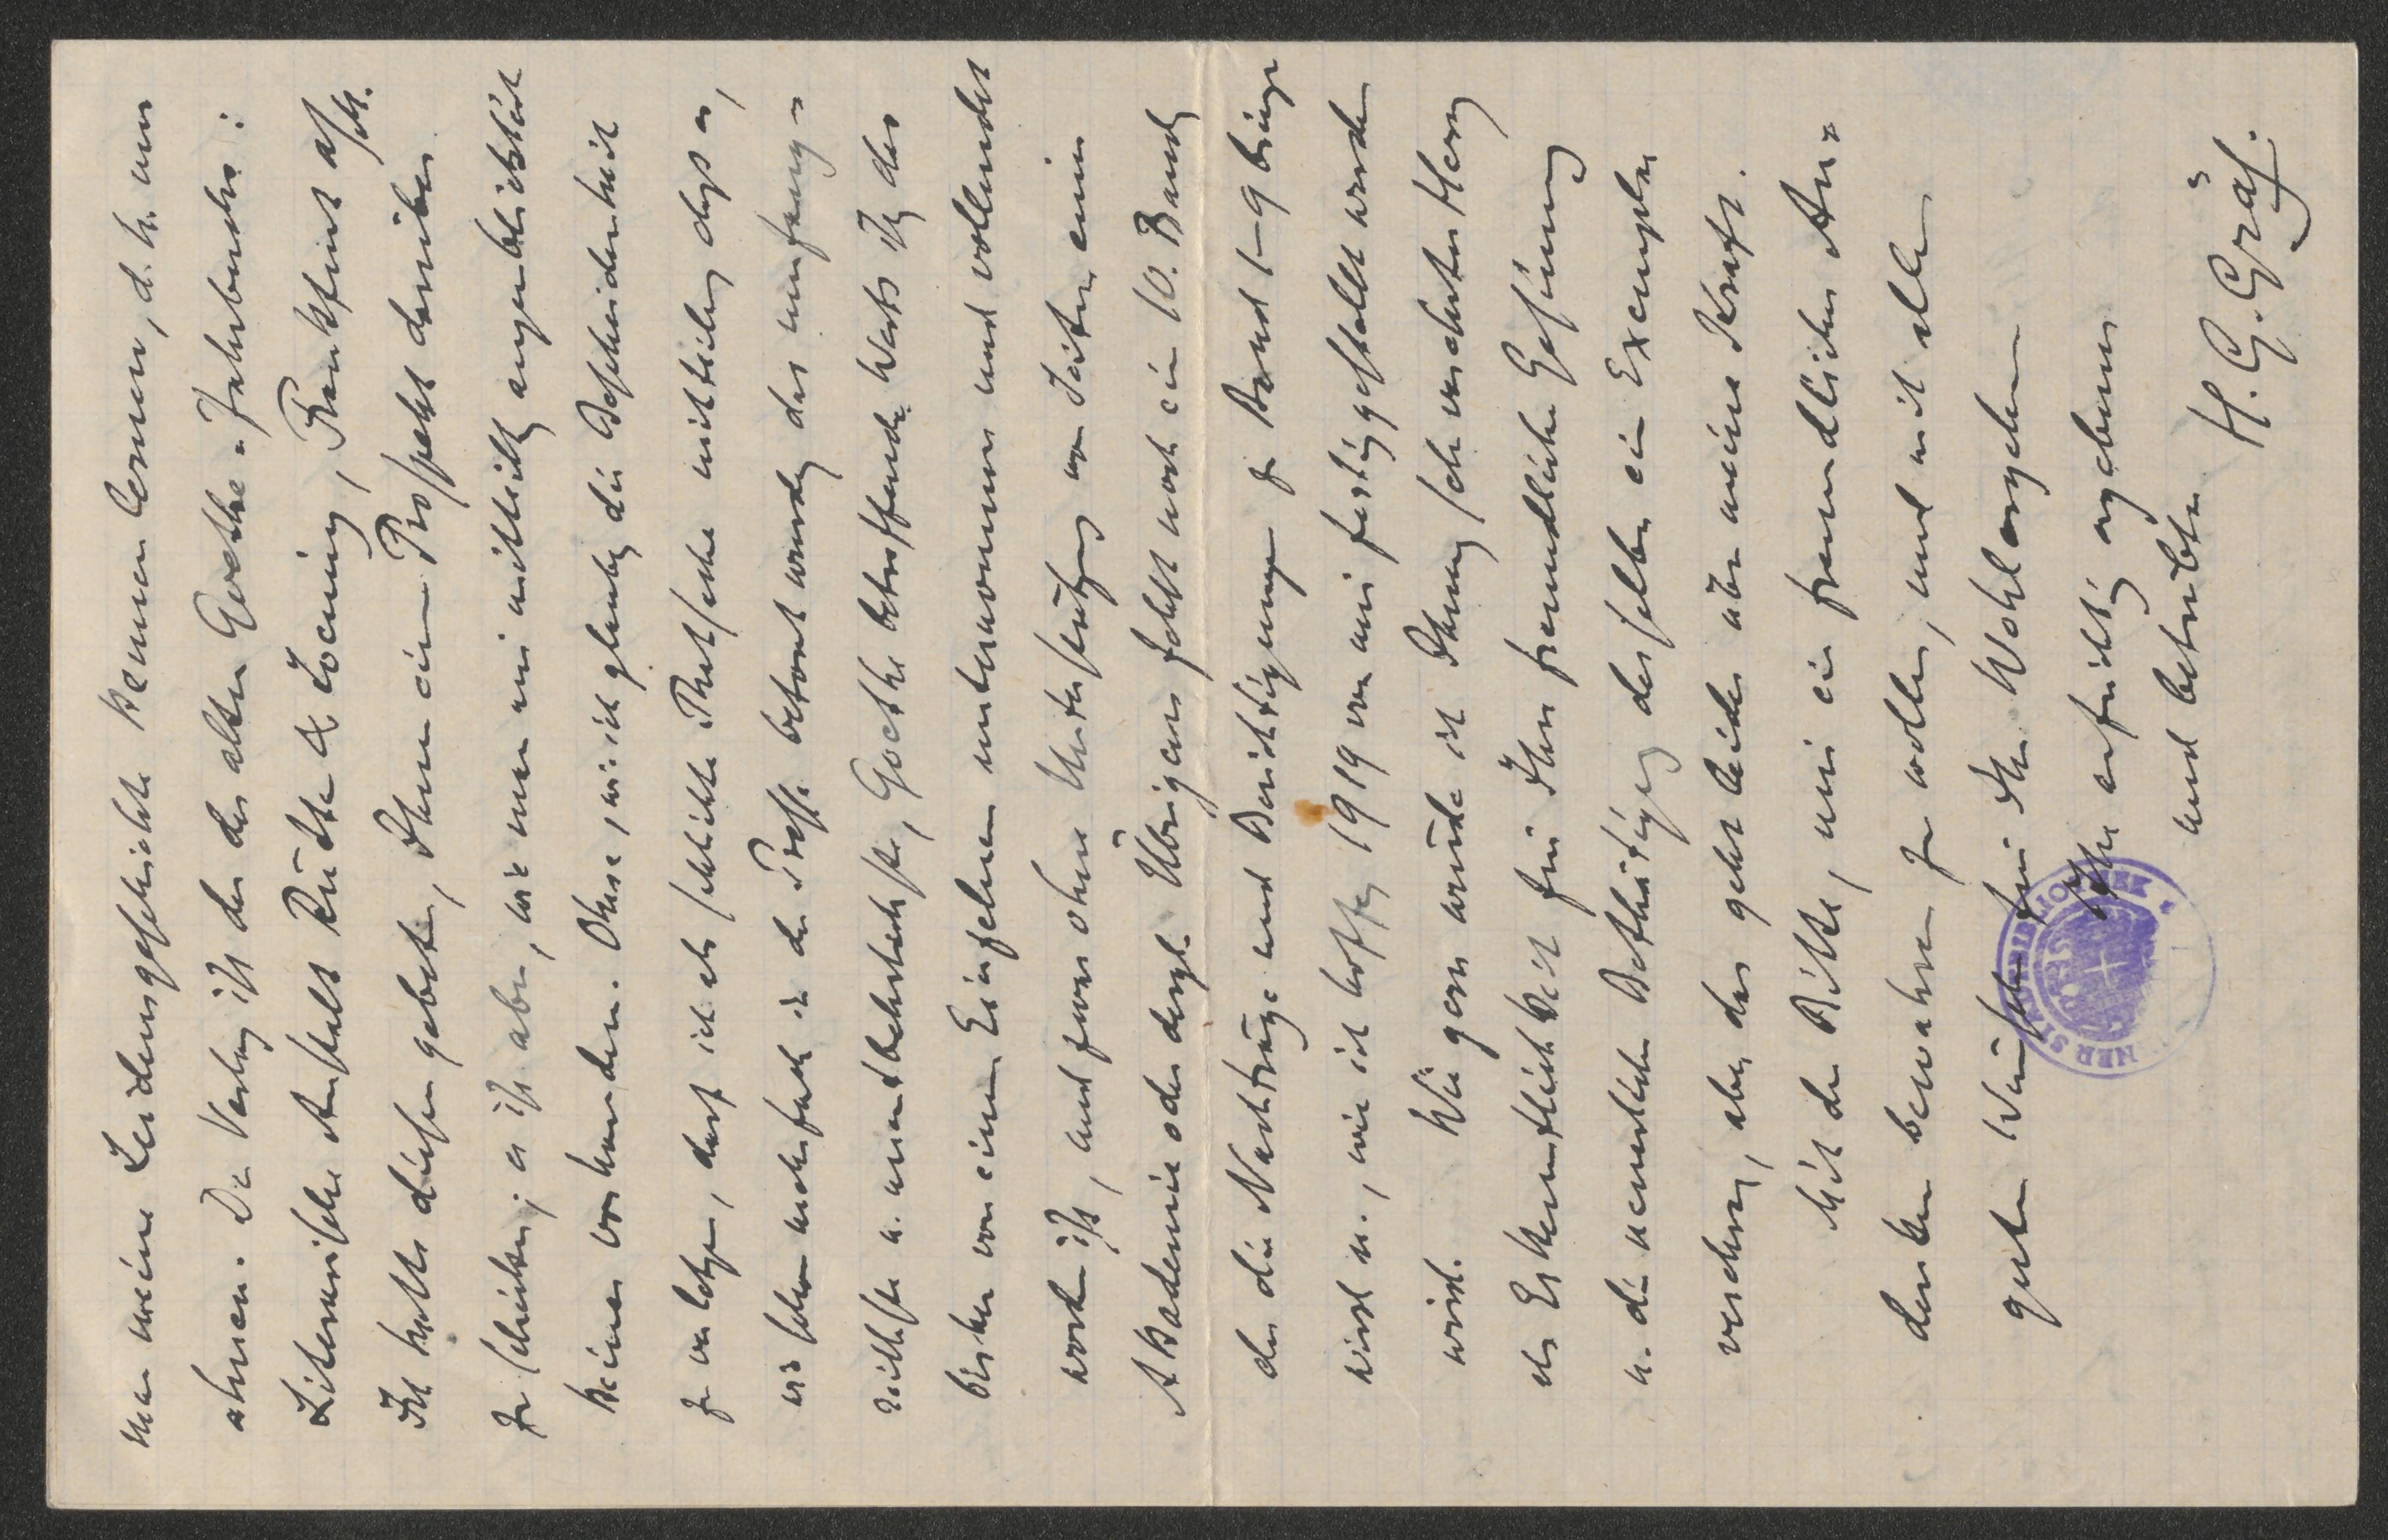 man meine Leidensgeschichte kennen lernen, d. h. nur
ahnen. Der Verlag ist der des alten Goethe-Jahrbuchs:
Literarische Anstalt Rütten & Loening, Frankfurt a/M.
Ich hatte diesen gebeten, Ihnen einen Prospekt darüber
zu schicken; es ist aber, wie man mir mittheilt, augenblicklich
keiner vorhanden. Ohne, wie ich glaube, die Bescheidenheit
zu verletzen, darf ich als schlichte Thatsache mittheilen, daß es,
wie schon mehrfach in der Presse betont wurde, das umfang-
reichste u. unentbehrlichste, Goethe betreffende Werk ist, das
bisher von einem Einzelnen unternommen und vollendet
worden ist, und zwar ohne Unterstützung von Seiten einer
Akademie oder dergl. Übrigens fehlt noch ein 10. Band,
der die Nachträge und Berichtigungen zu Band 1–9 bringen
wird u., wie ich hoffe, 1919 von mir fertiggestellt werden
wird. Wie gern würde ich Ihnen, sehr verehrter Herr,
als Erkenntlichkeit für Ihre freundliche Gesinnung
u. die neuerliche Bethätigung derselben ein Exemplar
verehren, aber das geht leider über meine Kraft.
Mit der Bitte, mir ein freundliches An-
denken bewahren zu wollen, und mit allen
guten Wünschen für Ihr Wohlergehen
Ihr aufrichtig ergebener
und betrübter
H. G. Gräf.